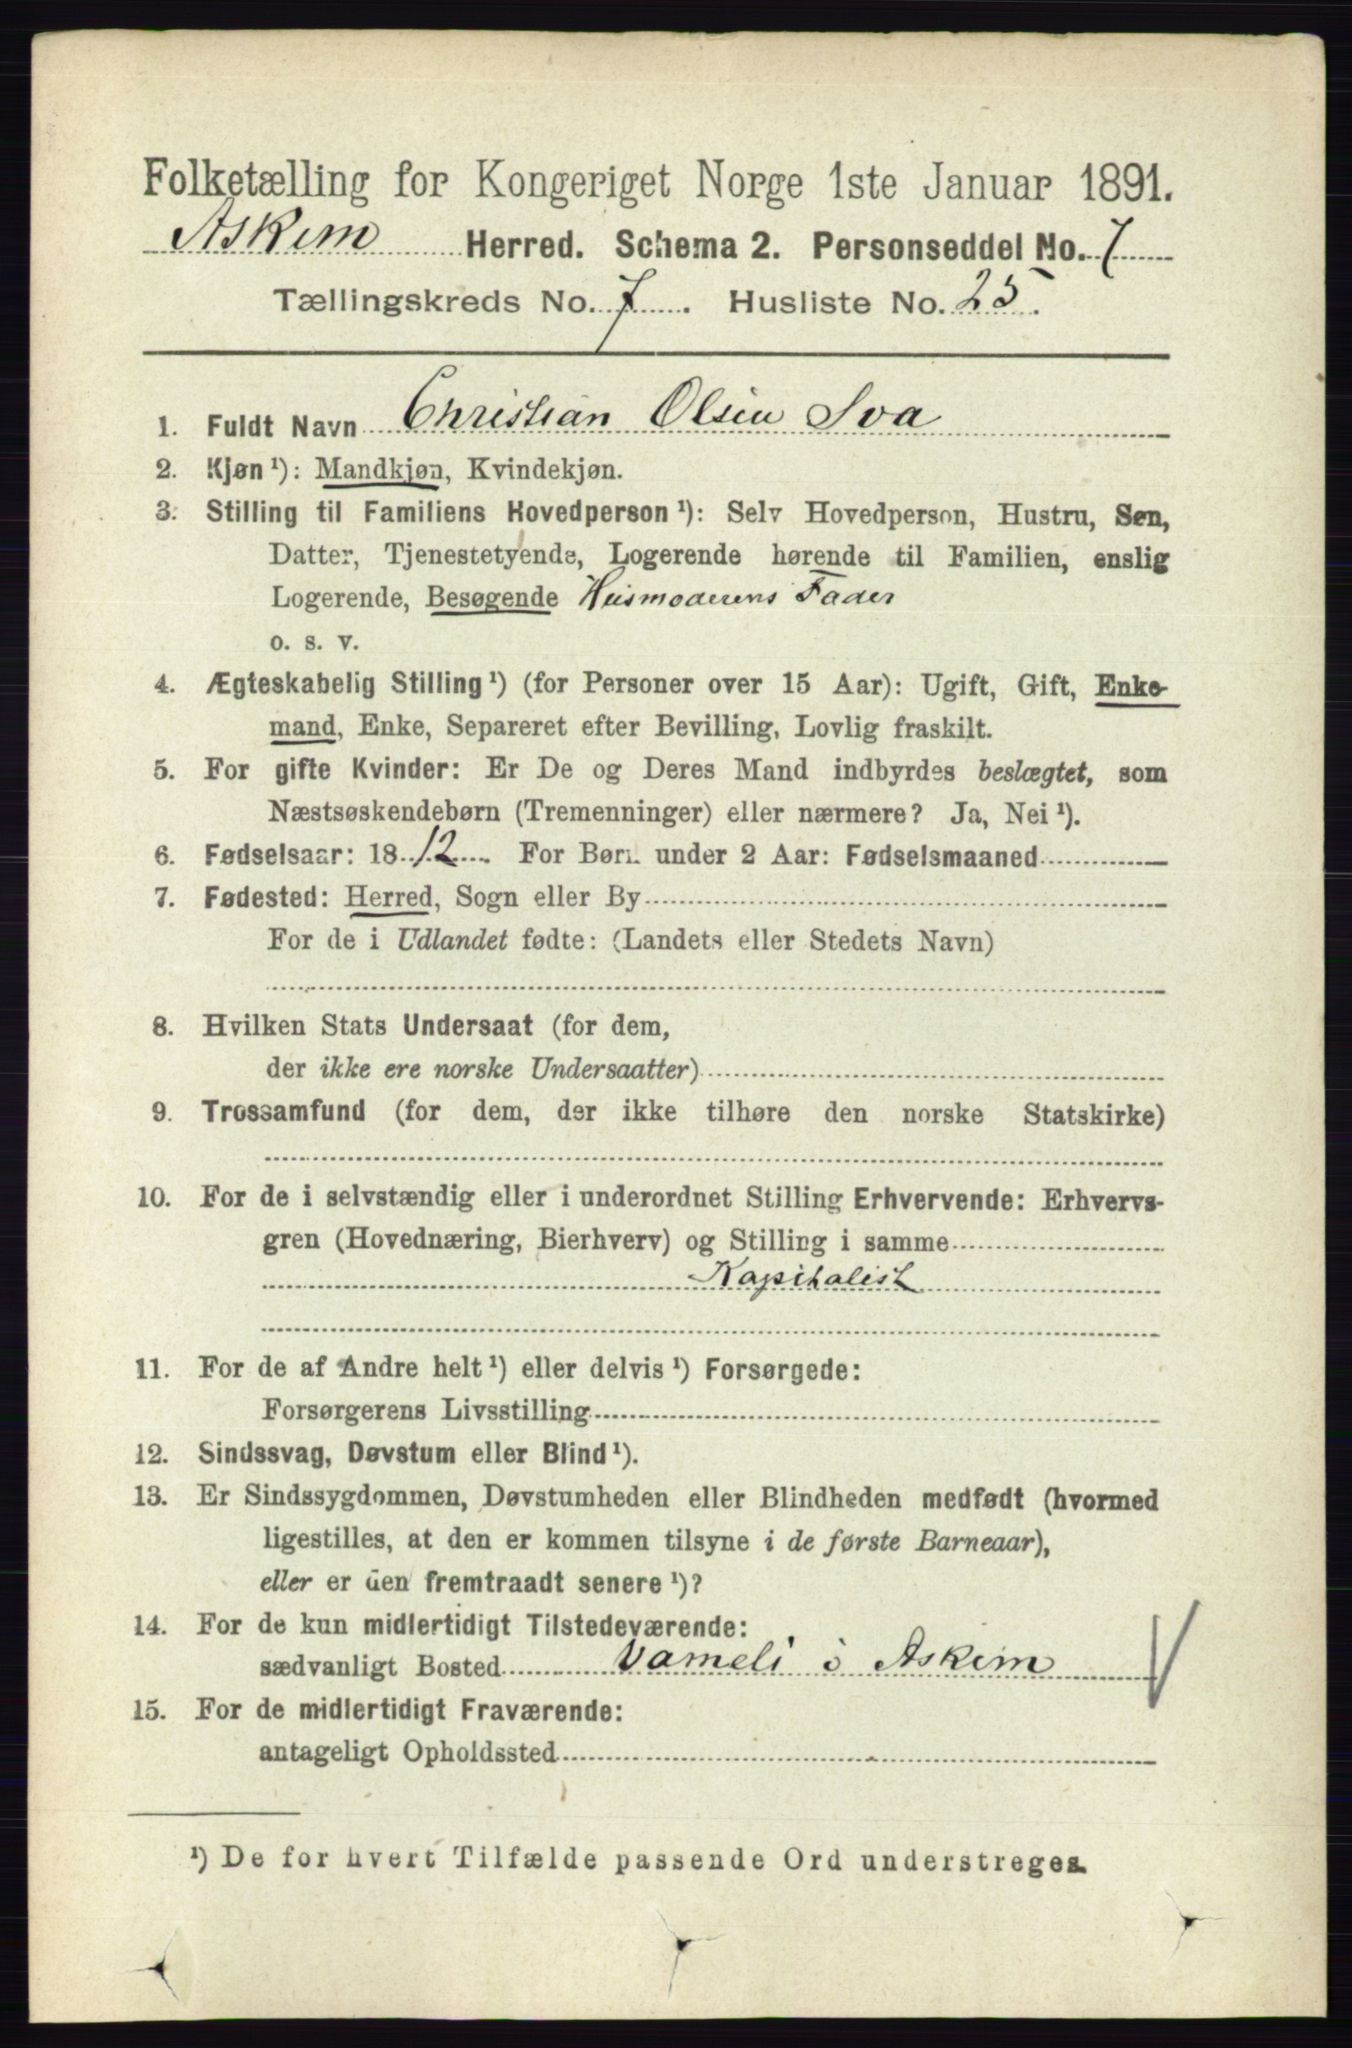 Folketælling for Kongeriget Norge 1ste Januar 1891.
Askim Herred. Schema 2. Personseddel No. 7
Tællingskreds No. 7. Husliste No. 25.
1. Fuldt Navn Christian Olsen Sva
2. Kjøn¹): Mandkjøn, Kvindekjøn.
3. Stilling til Familiens Hovedperson¹): Selv Hovedperson, Hustru, Søn,
Datter, Tjenestetyende, Logerende hørende til Familien, enslig
Logerende, Besøgende Husmoderens Fader
o. s. v.
4. Ægteskabelig Stilling¹) (for Personer over 15 Aar): Ugift, Gift, Enke-
mand, Enke, Separeret efter Bevilling, Lovlig fraskilt.
5. For gifte Kvinder: Er De og Deres Mand indbyrdes beslægtet, som
Næstsøskendebørn (Tremenninger) eller nærmere? Ja, Nei¹).
6. Fødselsaar: 1812. For Børn under 2 Aar: Fødselsmaaned
7. Fødested: Herred, Sogn eller By
For de i Udlandet fødte: (Landets eller Stedets Navn)
8. Hvilken Stats Undersaat (for dem,
der ikke ere norske Undersaatter)
9. Trossamfund (for dem, der ikke tilhøre den norske Statskirke)
10. For de i selvstændig eller i underordnet Stilling Erhvervende: Erhvervs-
gren (Hovednæring, Bierhverv) og Stilling i samme
Kapitalist
11. For de af Andre helt¹) eller delvis¹) Forsørgede:
Forsørgerens Livsstilling
12. Sindssvag, Døvstum eller Blind¹).
13. Er Sindssygdommen, Døvstumheden eller Blindheden medfødt (hvormed
ligestilles, at den er kommen tilsyne i de første Barneaar),
eller er den fremtraadt senere¹)?
14. For de kun midlertidigt Tilstedeværende:
sædvanligt Bosted Vameli i Askim
15. For de midlertidigt Fraværende:
antageligt Opholdssted
¹) De for hvert Tilfælde passende Ord understreges.